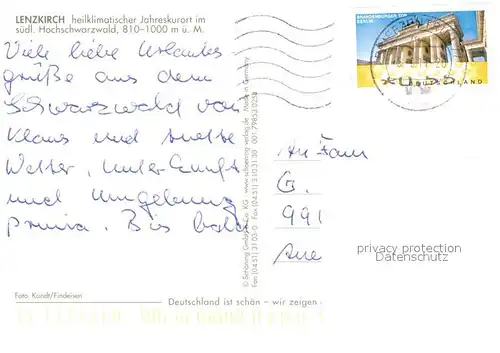 LENZKIRCH heilklimatischer Jahreskurort im
südl. Hochschwarzwald, 810–1000 m ü. M.
Viele liebe Urlaubs
grüße aus dem
Schwarzwald von
Klaus und
Wetter, Unterkunft
und Umgebung
prima. Bis bald
Foto: Kandt/Findeisen
Deutschland ist schön – wir zeigen
© Schöning GmbH & Co. KG · www.schoening-verlag.de · Made in Germany
Fax (04 51) 3 10 31 30
BRANDENBURGER TOR
BERLIN
DEUTSCHLAND
An Fam
G.
991
Aue
privacy protection
Datenschutz